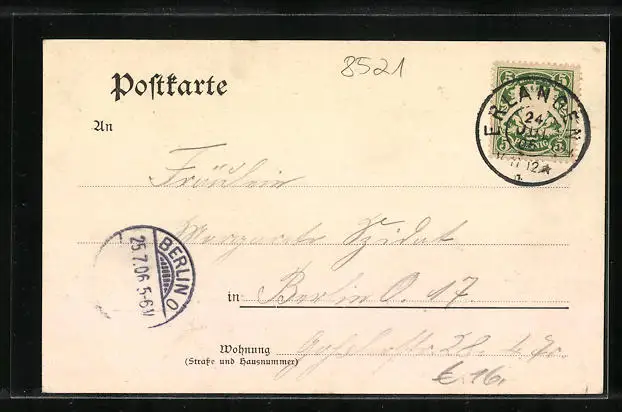 8521
Postkarte
5 5
ERLANGEN
24
JUL
PFENNIG
5 5
12
An
Fräulein
Margarete Szidat
BERLIN O
25.7.06.5-6
in Berlin O. 17
Wohnung
(Straße und Hausnummer)
28.
€ 16.